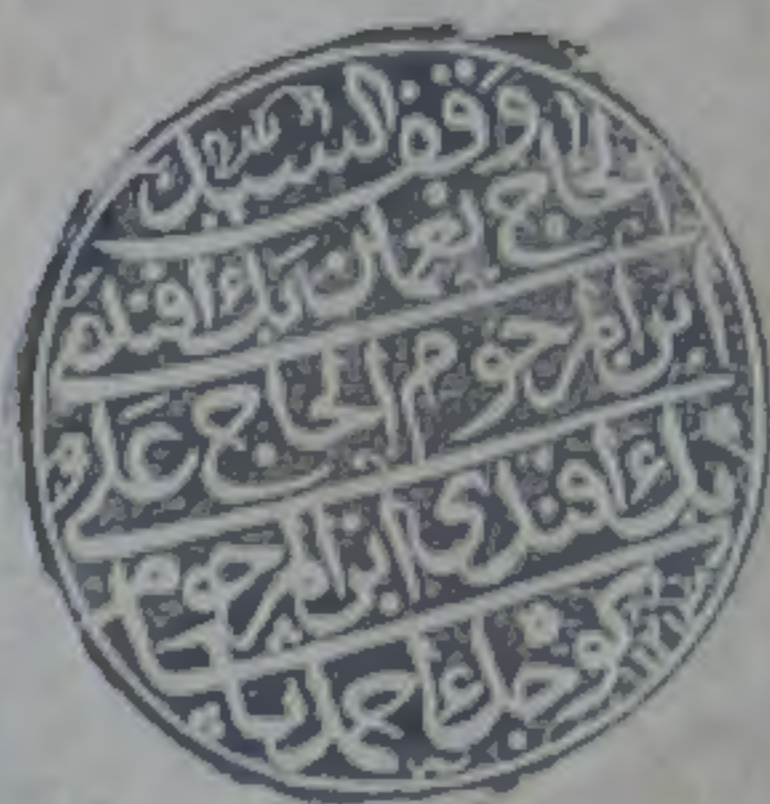 وقف السيد
الحاج نعمان بك افندى
ابن المرحوم الحاج على
بك افندى ابن المرحوم
كوجك احمد پاشا